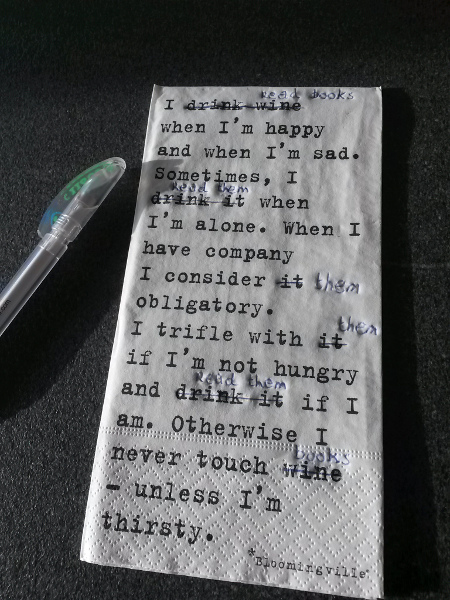 read books
I drink wine
when I'm happy
and when I'm sad.
Sometimes, I
Read them
drink it when
I'm alone. When I
have company
I consider it them
obligatory.
them
I trifle with it
if I'm not hungry
Read them
and drink it if I
am. Otherwise I
books
never touch wine
- unless I'm
thirsty.
*Bloomingville®